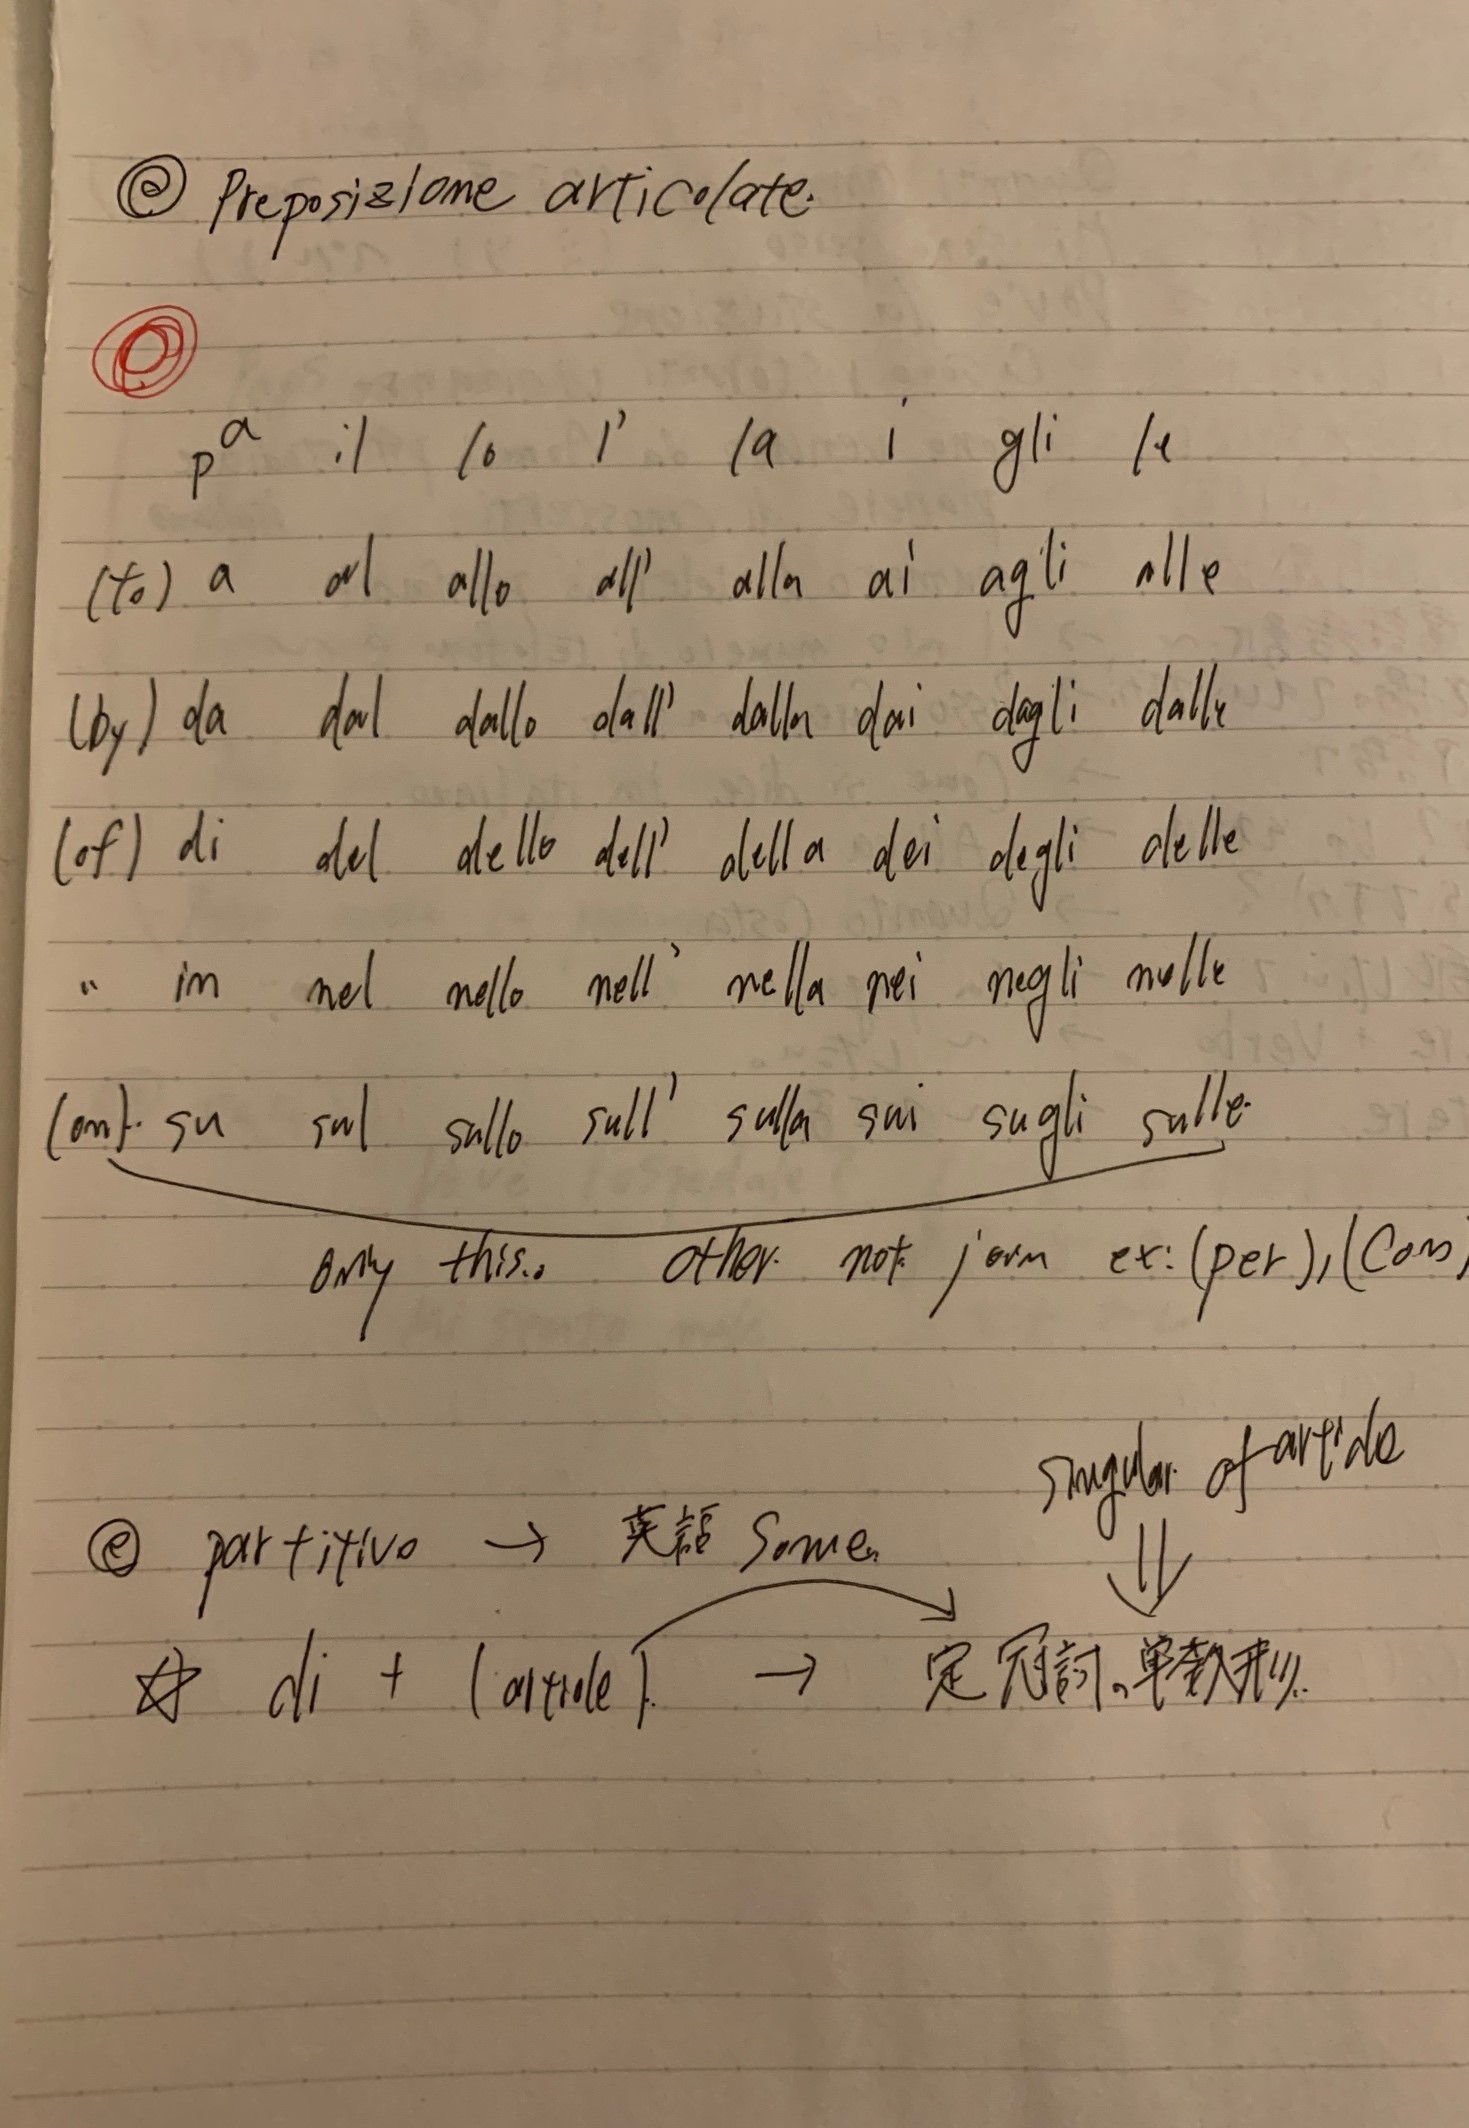 @ Preposizione articolate.
p a il lo l' la i gli le
(to) a al allo all' alla ai agli alle
(by) da dal dallo dall' dalla dai dagli dalle
(of) di del dello dell' della dei degli delle
" in nel nello nell' nella nei negli nelle
(on). su sul sullo sull' sulla sui sugli sulle.
only this.. other. not. join ex: (per), (Con)
singular. of article
@ partitivo → 英語 Some.
☆ di + (article). → 定冠詞。単数形り.